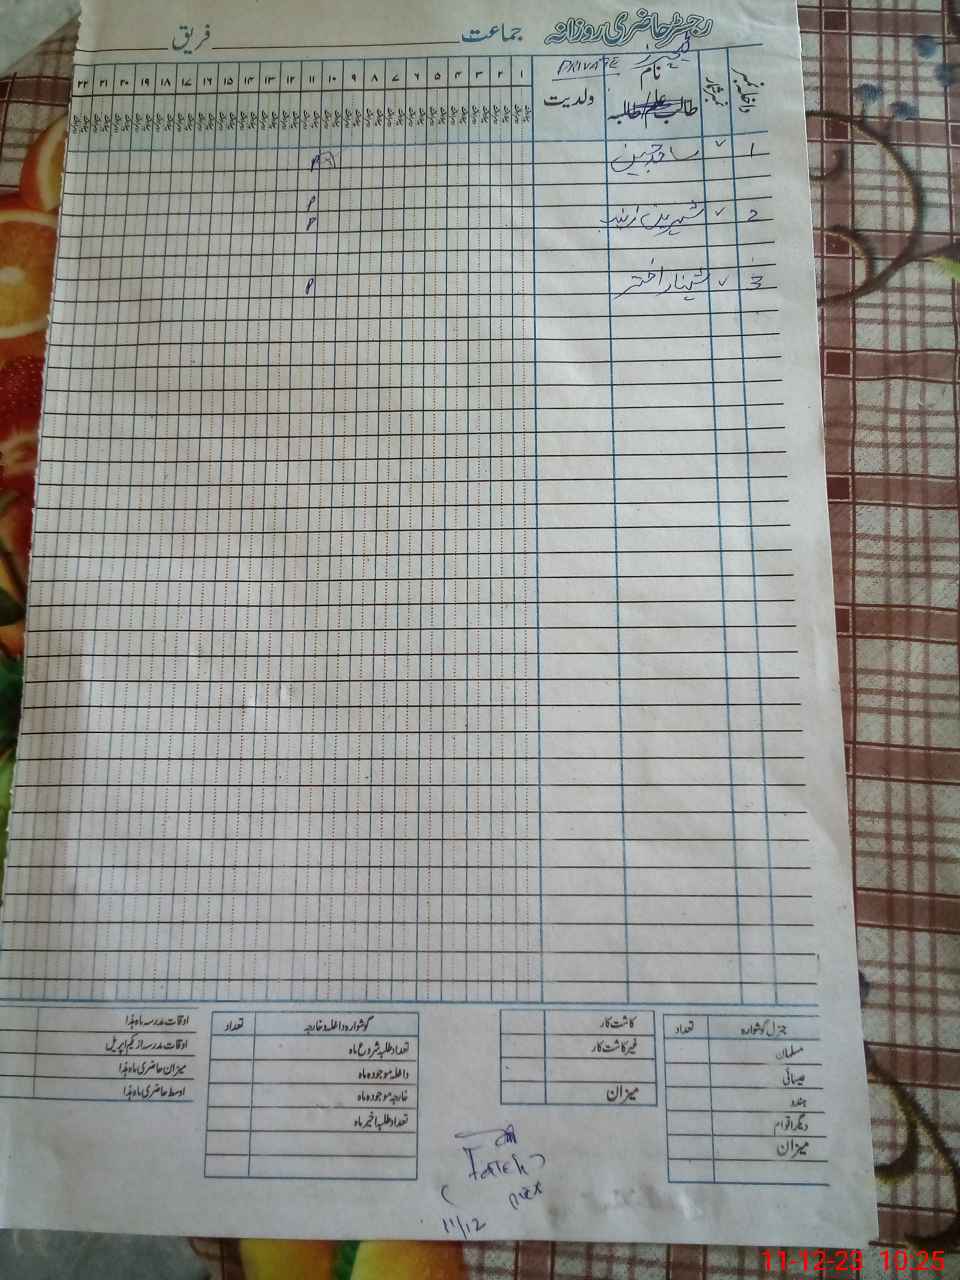 رجسٹر حاضری روزانہ جماعت فریق
داخلہ نمبر نمبر شمار ٹیچرز نام طالب علم/طالبہ PRIVATE ولدیت ۱ ۲ ۳ ۴ ۵ ۶ ۷ ۸ ۹ ۱۰ ۱۱ ۱۲ ۱۳ ۱۴ ۱۵ ۱۶ ۱۷ ۱۸ ۱۹ ۲۰ ۲۱ ۲۲
1 ساجد حسین P
P
2 شہرین زینب P
3 شہناز اختر P
جنرل گوشوارہ تعداد
مسلمان
عیسائی
ہندو
دیگر اقوام
میزان
کاشت کار
غیر کاشت کار
میزان
گوشوارہ داخلہ و خارجہ تعداد
تعداد طلبہ شروع ماہ
داخلہ موجودہ ماہ
خارجہ موجودہ ماہ
تعداد طلبہ اخیر ماہ
اوقات مدرسہ ماہ ہٰذا
اوقات مدرسہ از یکم اپریل
میزان حاضری ماہ ہٰذا
اوسط حاضری ماہ ہٰذا
11/12
11-12-23 10:25